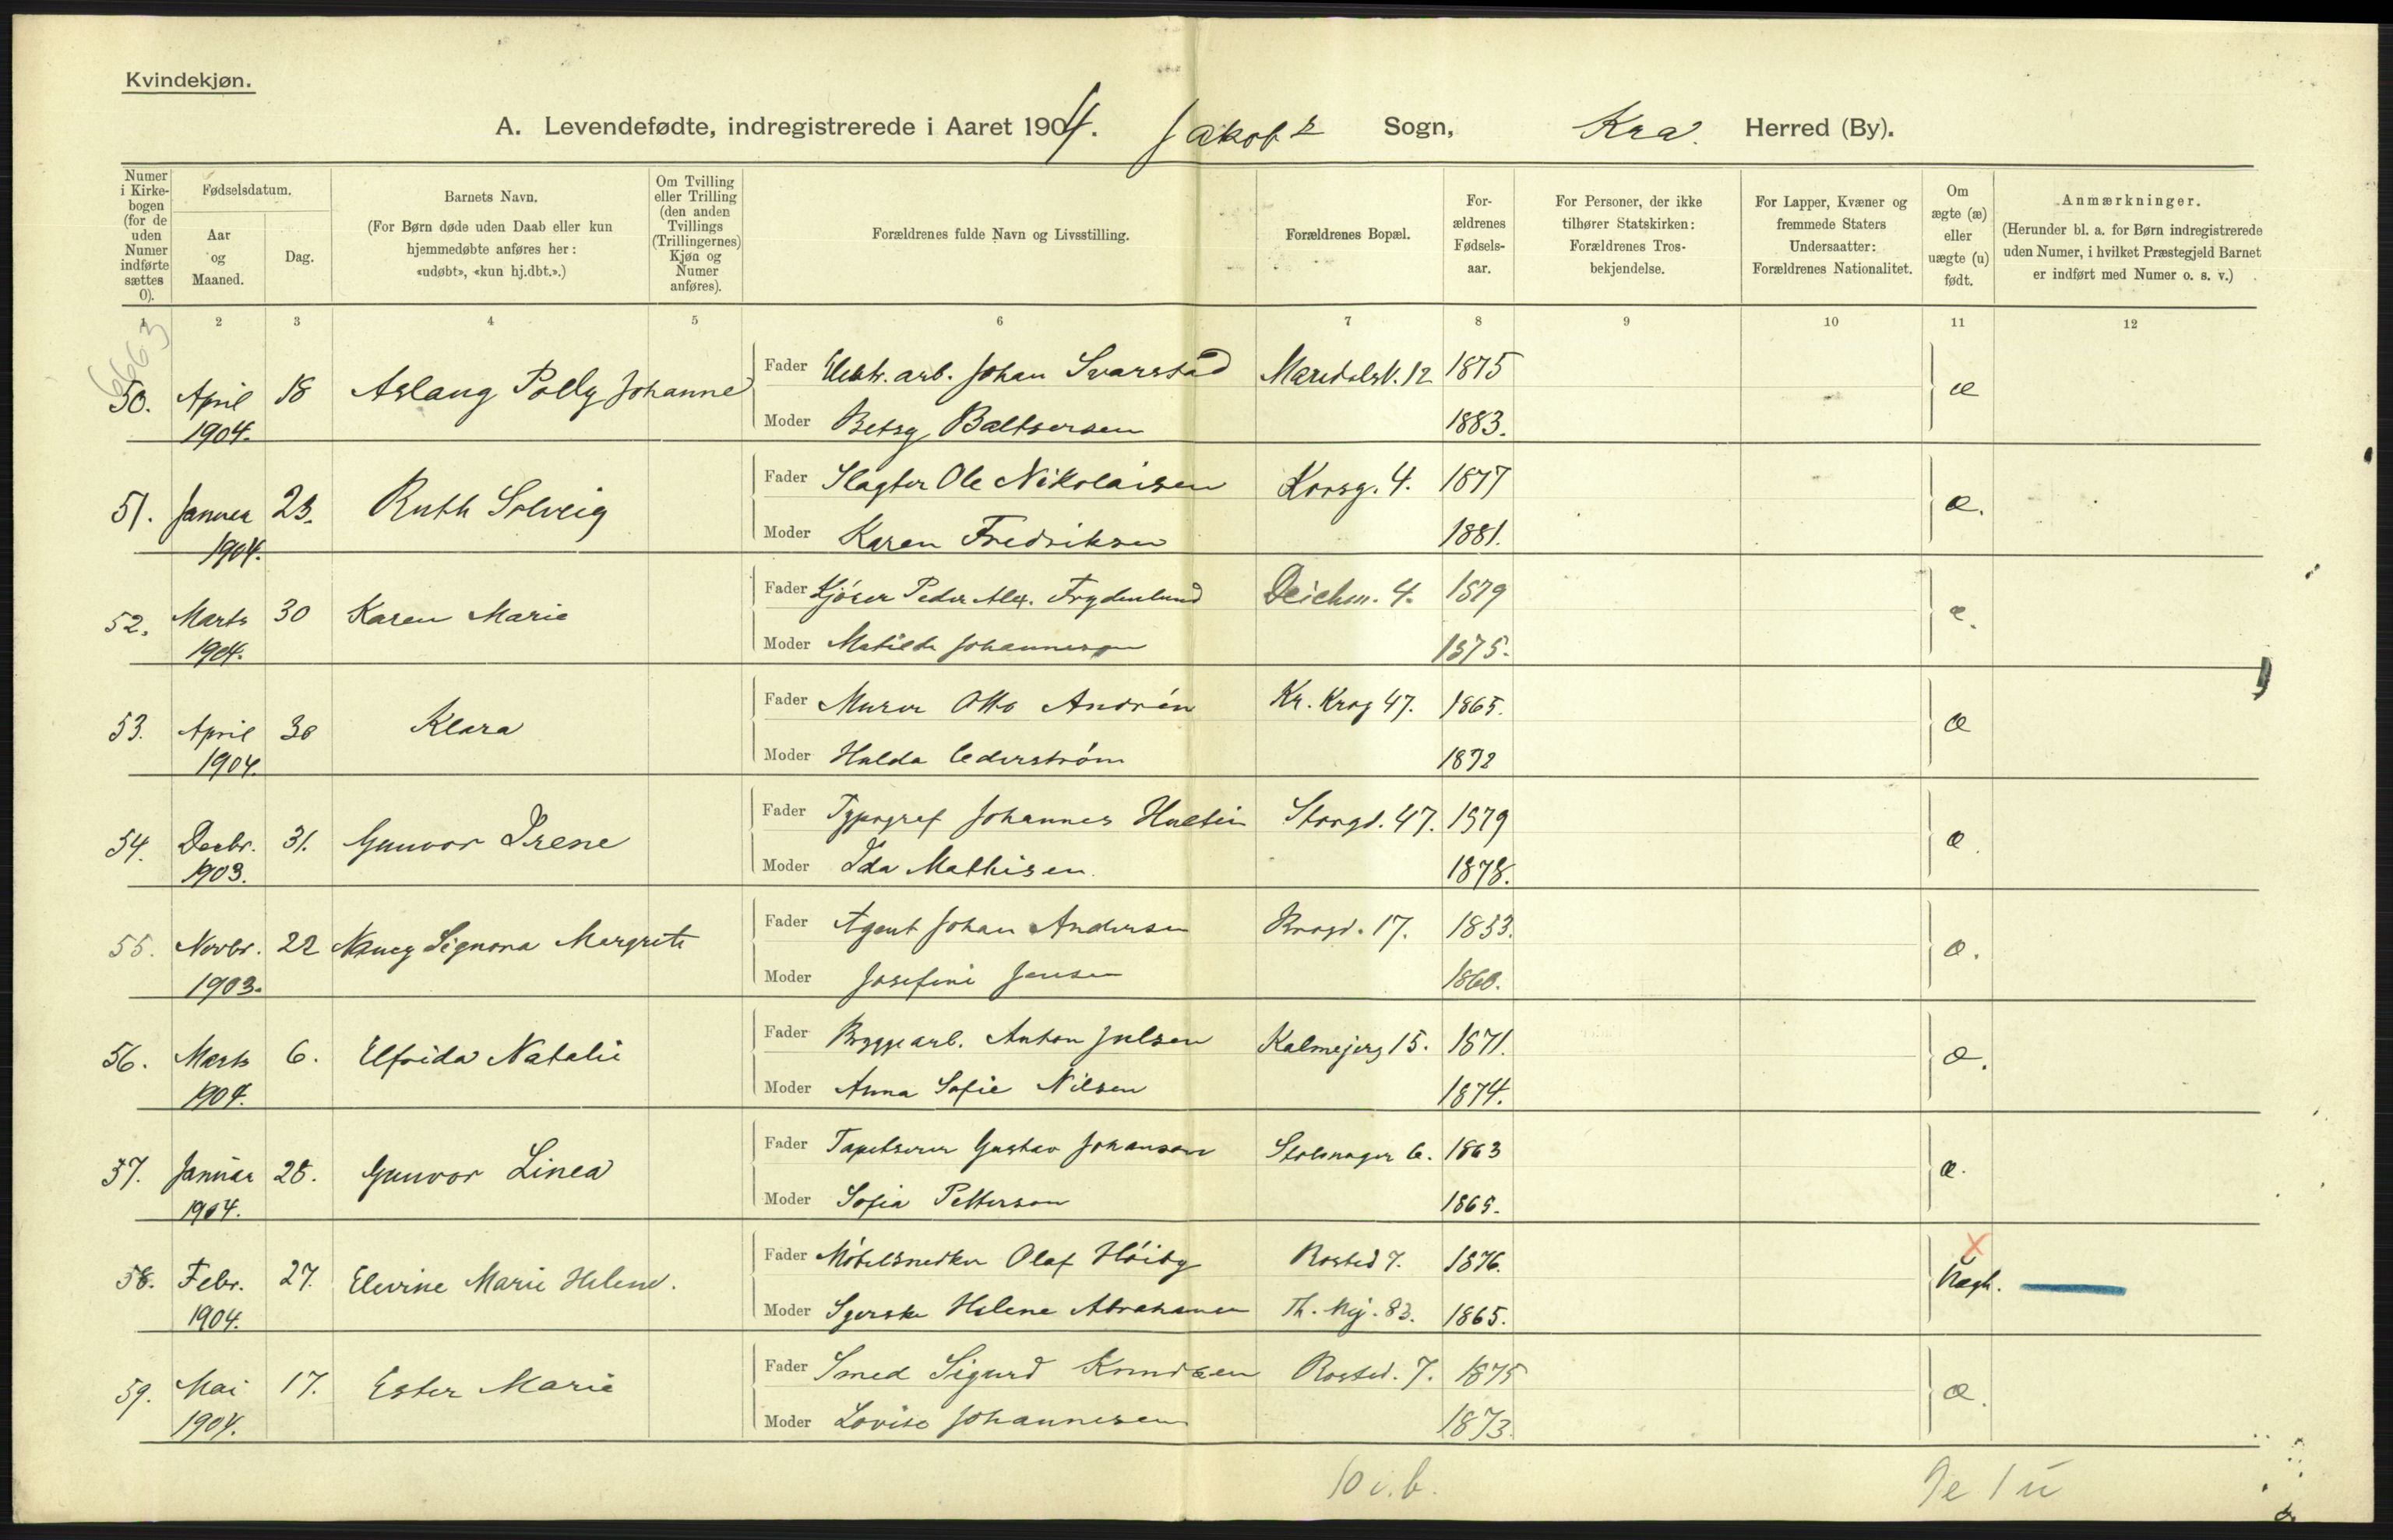 Kvindekjøn.
A. Levendefødte, indregistrerede i Aaret 1904. Jakobs Sogn, Kra. Herred (By).
Numer i Kirke-bogen (for de uden Numer indførte sættes 0).
Fødselsdatum.
Aar og Maaned.
Dag.
Barnets Navn.
(For Børn døde uden Daab eller kun hjemmedøbte anføres her: «udøbt», «kun hj.dbt.».)
Om Tvilling eller Trilling (den anden Tvillings (Trillingernes) Kjøn og Numer anføres).
Forældrenes fulde Navn og Livsstilling.
Forældrenes Bopæl.
For-ældrenes Fødsels-aar.
For Personer, der ikke tilhører Statskirken: Forældrenes Tros-bekjendelse.
For Lapper, Kvæner og fremmede Staters Undersaatter: Forældrenes Nationalitet.
Om ægte (æ) eller uægte (u) født.
Anmærkninger.
(Herunder bl. a. for Børn indregistrerede uden Numer, i hvilket Præstegjeld Barnet er indført med Numer o. s. v.)
1 2 3 4 5 6 7 8 9 10 11 12
6663
50. April 1904. 18 Aslaug Polly Johanne
Fader Elektr. arb. Johan Svarstad Maridalsv. 12 1875 æ
Moder Betsy Baltsersen 1883.
51. Januar 1904. 23. Ruth Solveig
Fader Slagter Ole Nikolaisen Korsg. 4. 1877 æ.
Moder Karen Fredriksen 1881.
52. Marts 1904. 30 Karen Marie
Fader Kjører Peder Alex. Frydenlund Deichm. 4. 1879 æ.
Moder Matilde Johannesen 1875.
53. April 1904. 30 Klara
Fader Murer Otto Andrén Kr. Krog 47. 1865. æ
Moder Hulda Cederstrøm 1872
54. Decbr. 1903. 31. Gunvor Irene
Fader Typograf Johannes Hultin Storgd. 47. 1879 æ.
Moder Ida Mathisen. 1878.
55. Novbr. 1903. 22 Nancy Signora Margrete
Fader Agent Johan Andersen Brogd. 17. 1853. æ.
Moder Josefine Jensen 1860.
56. Marts 1904. 6. Elfrida Natalie
Fader Bryggearb. Anton Julsen Kalmejerg 15. 1871. æ.
Moder Anna Sofie Nilsen 1874.
57. Januar 1904. 28. Gunvor Linea
Fader Tapetserer Gustav Johanson Stolmager 6. 1863 æ.
Moder Sofia Petterson 1865.
58. Febr. 1904. 27. Elevine Marie Helene.
Fader Møbelsnedker Olaf Høiby Rosted 7. 1876. Uægt.
Moder Syerske Helene Abrahamsen Th. Mej. 83. 1865.
59. Mai 1904. 17. Ester Marie
Fader Smed Sigurd Knudsen Rosted. 7. 1875 æ.
Moder Lovise Johannesen 1873.
10 i.b. 9e 1u